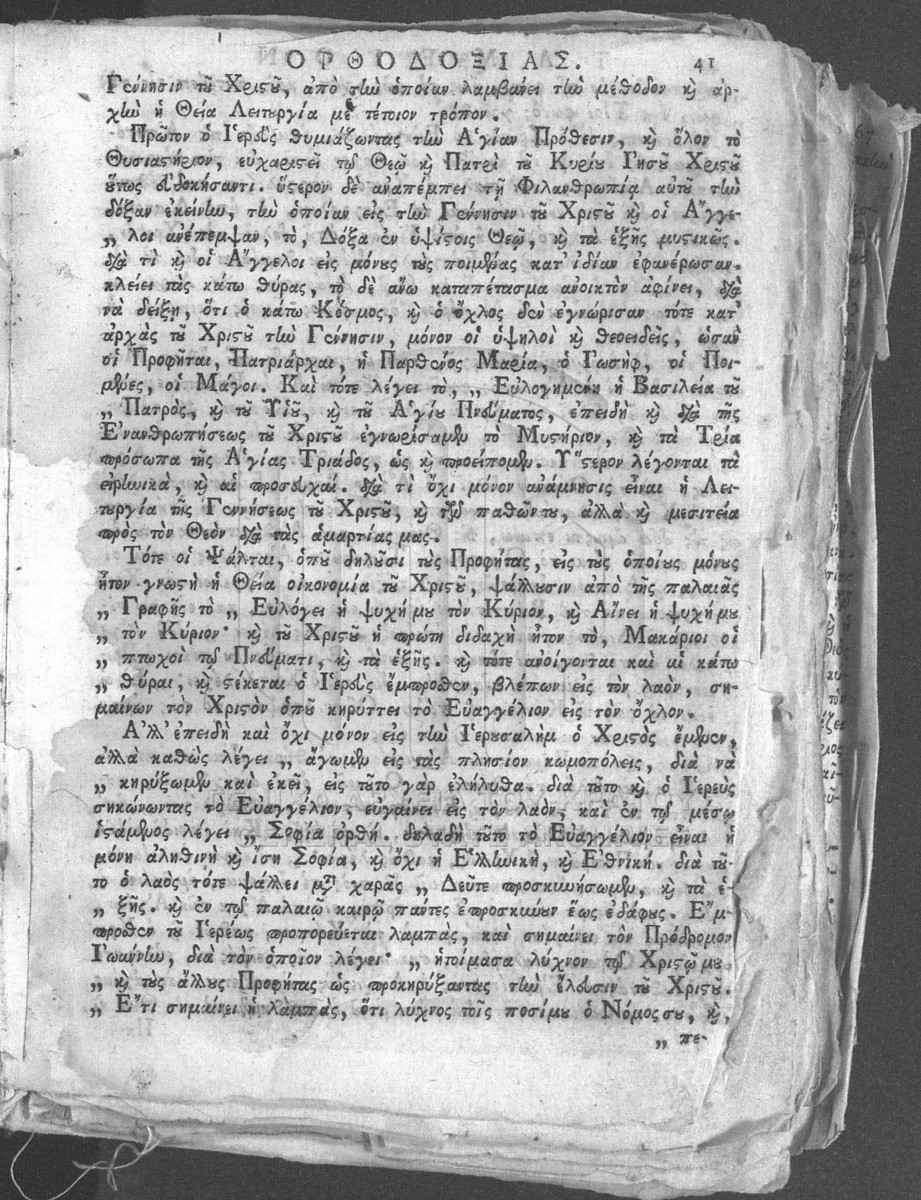 ΟΡΘΟΔΟΞΙΑΣ. 41
Γέννησιν τȣ͂ Χριςȣ͂, ἀπὸ τὴν ὁποίαν λαμβάνει τὴν μέθοδον ϗ ἀρ-
χὴν ἡ Θεία Λειτȣργία μὲ τέτοιον τρόπον.
Πρῶτον ὁ Ἱερεὺς θυμιάζωντας τὴν Ἁγίαν Πρόθεσιν, ϗ ὅλον τὸ
Θυσιαςήριον, εὐχαριςεῖ τῷ Θεῷ ϗ Πατρὶ τȣ͂ Κυρίȣ Ἰησȣ͂ Χριςȣ͂
ȣ̔́τως εὐδοκήσαντι. ὕςερον δὲ ἀναπέμπει τῇ Φιλανθρωπίᾳ αὐτȣ͂ τὴν
δόξαν ἐκείνην, τὴν ὁποίαν εἰς τὴν Γέννησιν τȣ͂ Χριςȣ͂ ϗ οἱ Ἄγγε-
„ λοι ἀνέπεμψαν, τὸ, Δόξα ἐν ὑψίςοις Θεῷ, ϗ τὰ ἑξῆς μυςικῶς.
διὰ τὶ ϗ οἱ Ἄγγελοι εἰς μόνȣς τȣ̀ς ποιμένας κατ' ἰδίαν ἐφανέρωσαν.
κλείει τὰς κάτω θύρας, τὸ δὲ ἄνω καταπέτασμα ἀνοικτὸν ἀφίνει, διὰ
νὰ δείξῃ, ὅτι ὁ κάτω Κόσμος, ϗ ὁ ὄχλος δὲν ἐγνώρισαν τότε κατ'
ἀρχὰς τȣ͂ Χριςȣ͂ τὴν Γέννησιν, μόνον οἱ ὑψηλοὶ ϗ θεοειδεῖς, ὡσὰν
οἱ Προφῆται, Πατριάρχαι, ἡ Παρθένος Μαρία, ὁ Ἰωσὴφ, οἱ Ποι-
μένες, οἱ Μάγοι. Καὶ τότε λέγει τὸ, „ Εὐλογημένη ἡ Βασιλεία τȣ͂
„ Πατρὸς, ϗ τȣ͂ Υἱȣ͂, ϗ τȣ͂ Ἁγίȣ Πνεύματος, ἐπειδὴ ϗ διὰ τῆς
Ἐνανθρωπήσεως τȣ͂ Χριςȣ͂ ἐγνωρίσαμεν τὸ Μυςήριον, ϗ τὰ Τρία
πρόσωπα τῆς Ἁγίας Τριάδος, ὡς ϗ προείπομεν. Ὕςερον λέγονται τὰ
εἰρηνικὰ, ϗ αἱ προσευχαί. διὰ τὶ ὄχι μόνον ἀνάμνησις εἶναι ἡ Λει-
τȣργία τῆς Γεννήσεως τȣ͂ Χριςȣ͂, ϗ τῶν παθῶν τȣ, ἀλλὰ ϗ μεσιτεία
πρὸς τὸν Θεὸν διὰ τὰς ἁμαρτίας μας.
Τότε οἱ Ψάλται, ὁπȣ͂ δηλȣ͂σι τȣ̀ς Προφήτας, εἰς τȣ̀ς ὁποίȣς μόνȣς
ἦτον γνωςὴ ἡ Θεία οἰκονομία τȣ͂ Χριςȣ͂, ψάλλȣσιν ἀπὸ τῆς παλαιᾶς
„ Γραφῆς τὸ „ Εὐλόγει ἡ ψυχή μȣ τὸν Κύριον, ϗ Αἴνει ἡ ψυχή μȣ
„ τὸν Κύριον· ϗ τȣ͂ Χριςȣ͂ ἡ πρώτη διδαχὴ ἦτον τὸ, Μακάριοι οἱ
„ πτωχοὶ τῷ Πνεύματι, ϗ τὰ ἑξῆς. ϗ τότε ἀνοίγονται καὶ αἱ κάτω
„ θύραι, ϗ ςέκεται ὁ Ἱερεὺς ἔμπροθεν, βλέπων εἰς τὸν λαὸν, ση-
μαίνων τὸν Χριςὸν ὁπȣ͂ κηρύττει τὸ Εὐαγγέλιον εἰς τὸν ὄχλον.
Ἀλλ' ἐπειδὴ καὶ ὄχι μόνον εἰς τὴν Ἱερȣσαλὴμ ὁ Χριςὸς ἔμενεν,
ἀλλὰ καθὼς λέγει „ ἄγωμεν εἰς τὰς πλησίον κωμοπόλεις, διὰ νὰ
„ κηρύξωμεν καὶ ἐκεῖ, εἰς τȣ͂το γὰρ ἐλήλυθα. διὰ τȣ͂το ϗ ὁ Ἱερεὺς
σηκώνωντας τὸ Εὐαγγέλιον, εὐγαίνει εἰς τὸν λαὸν, καὶ ἐν τῷ μέσῳ
ἱςάμενος λέγει „ Σοφία ὀρθή. δηλαδὴ τȣ͂το τὸ Εὐαγγέλιον εἶναι ἡ
μόνη ἀληθινὴ ϗ ἴση Σοφία, ϗ ὄχι ἡ Ἑλληνικὴ, ϗ Ἐθνική. διὰ τȣ͂-
το ὁ λαὸς τότε ψάλλει μετὰ χαρᾶς „ Δεῦτε προσκυνήσωμεν, ϗ τὰ ἑ-
„ ξῆς. ϗ ἐν τῷ παλαιῷ καιρῷ πάντες ἐπροσκυνȣν ἕως ἐδάφȣς. Ἔμ-
προθεν τȣ͂ Ἱερέως προπορεύεται λαμπὰς, καὶ σημαίνει τὸν Πρόδρομον
Ἰωάννην, διὰ τὸν ὁποῖον λέγει· „ ἡτοίμασα λύχνον τῷ Χριςῷ μȣ
„ ϗ τȣ̀ς ἄλλȣς Προφήτας ὡς προκηρύξαντας τὴν ἔλευσιν τȣ͂ Χριςȣ͂.
„ Ἔτι σημαίνει ἡ λαμπὰς, ὅτι λύχνος τοῖς ποσί μȣ ὁ Νόμος σȣ, ϗ,
„ πε-